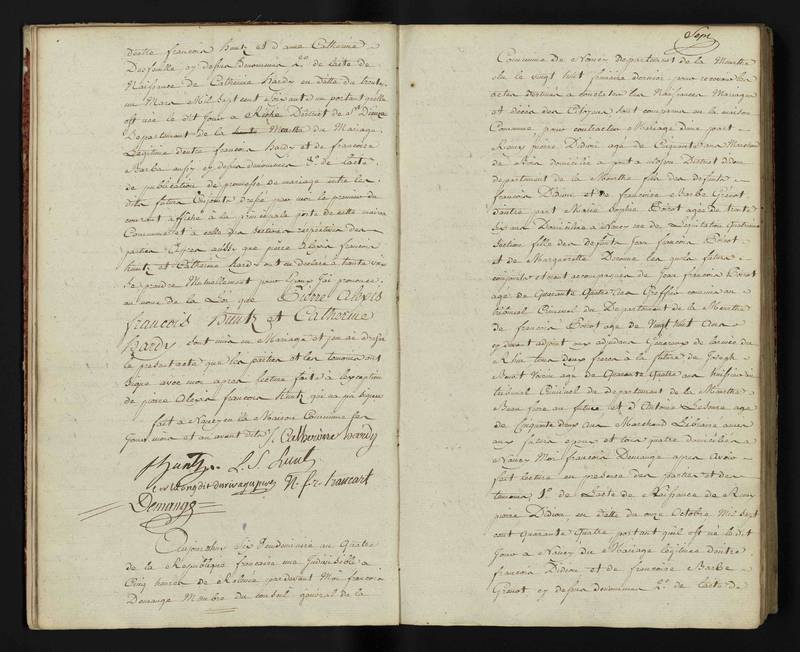 D'entre françois huntz et d'anne Catherine
Desfeuille cy dessus Denommés 2.o de lacte de
Naissance de Catherine hardy en datte du trente
un Mars Mil Sept cent Soixante un portant quelle
est née le dit Jour a District de St. Diez
Département de la Meurthe du Mariage
Légitime d'entre françois hardy et de françoise
Barbe aussy cy dessus denommés 3.o de lacte
de publication de promesse de mariage entre les
dits futurs Conjoints dressé par moi le premier du
courant affiché à la principale porte de cette maison
Commune et a celle des sections respectives des
parties apres aussi que pierre alexis françois
huntz et Catherine hardy ont eu declaré à haute voix
Se prendre Mutuellement pour Epoux J'ai prononcé
au nom de la Loi que Pierre Alexis
françois huntz et Catherine
hardy sont unis en Mariage et j'en ai dressé
le present acte que les parties et les temoins ont
Signé avec moi apres lecture faite à lexception
de pierre alexis francois huntz qui n'a pu signer
fait a Nancy en la Maison Commune les
Jour mois et an avant dits. Catherine hardy
huntz L. S.
N. f. r. francart
Demange
Aujourdhui Six Vendemiaire au Quatre
de la Republique francaise une Indivisible a
Cinq heures de Relevée pardevant Moi francois
Demange Membre du conseil general de la
Sept
Commune de Nancy Departement de la Meurthe
elu le vingt huit frimaire dernier pour recevoir les
actes destinés a constater les Naissances Mariages
et décès des Citoyens sont comparus en la maison
Commune pour contracter Mariage d'une part
Remy pierre Didion agé de Cinquante ans Marchand
de Bois domicilié a pont a Mousson District Idem
departement de la Meurthe fils des defunts
francois Didion et de francoise Barbe Grenot
d'autre part Marie Sophie Poirot agée de trente
Six ans Domiciliée a Nancy rue de Legislation Quatrieme
Section fille des defunts Jean françois Poirot
et de Marguerite les quels futurs
conjoints etoient accompagnés de Jean francois Poirot
agé de Quarante Quatre ans Greffier commis au
tribunal Criminel du Departement de la Meurthe
de francois Poirot agé de Vingt huit ans
cy devant adjoint aux adjudans Generaux de larmée du
Rhin tous deux freres a la future de Joseph
agé de Quarante Quatre ans huissier au
tribunal Criminel du departement de la Meurthe
Beau frere au futur et d'Antoine agé
de Cinquante deux ans Marchand Libraire amis
aux futurs epoux et tous quatre domiciliés a
Nancy Moi francois Demange apres avoir
fait lecture en presence des parties et des
temoins, 1.o de Lacte de Naissance de Remy
pierre Didion, en datte du onze Octobre Mil Sept
cent Quarante Quatre portant qu'il est né le dit
Jour a Nancy du Mariage legitime d'entre
francois Didion et de francoise Barbe
Grenot cy dessus denommés 2.o de lacte de